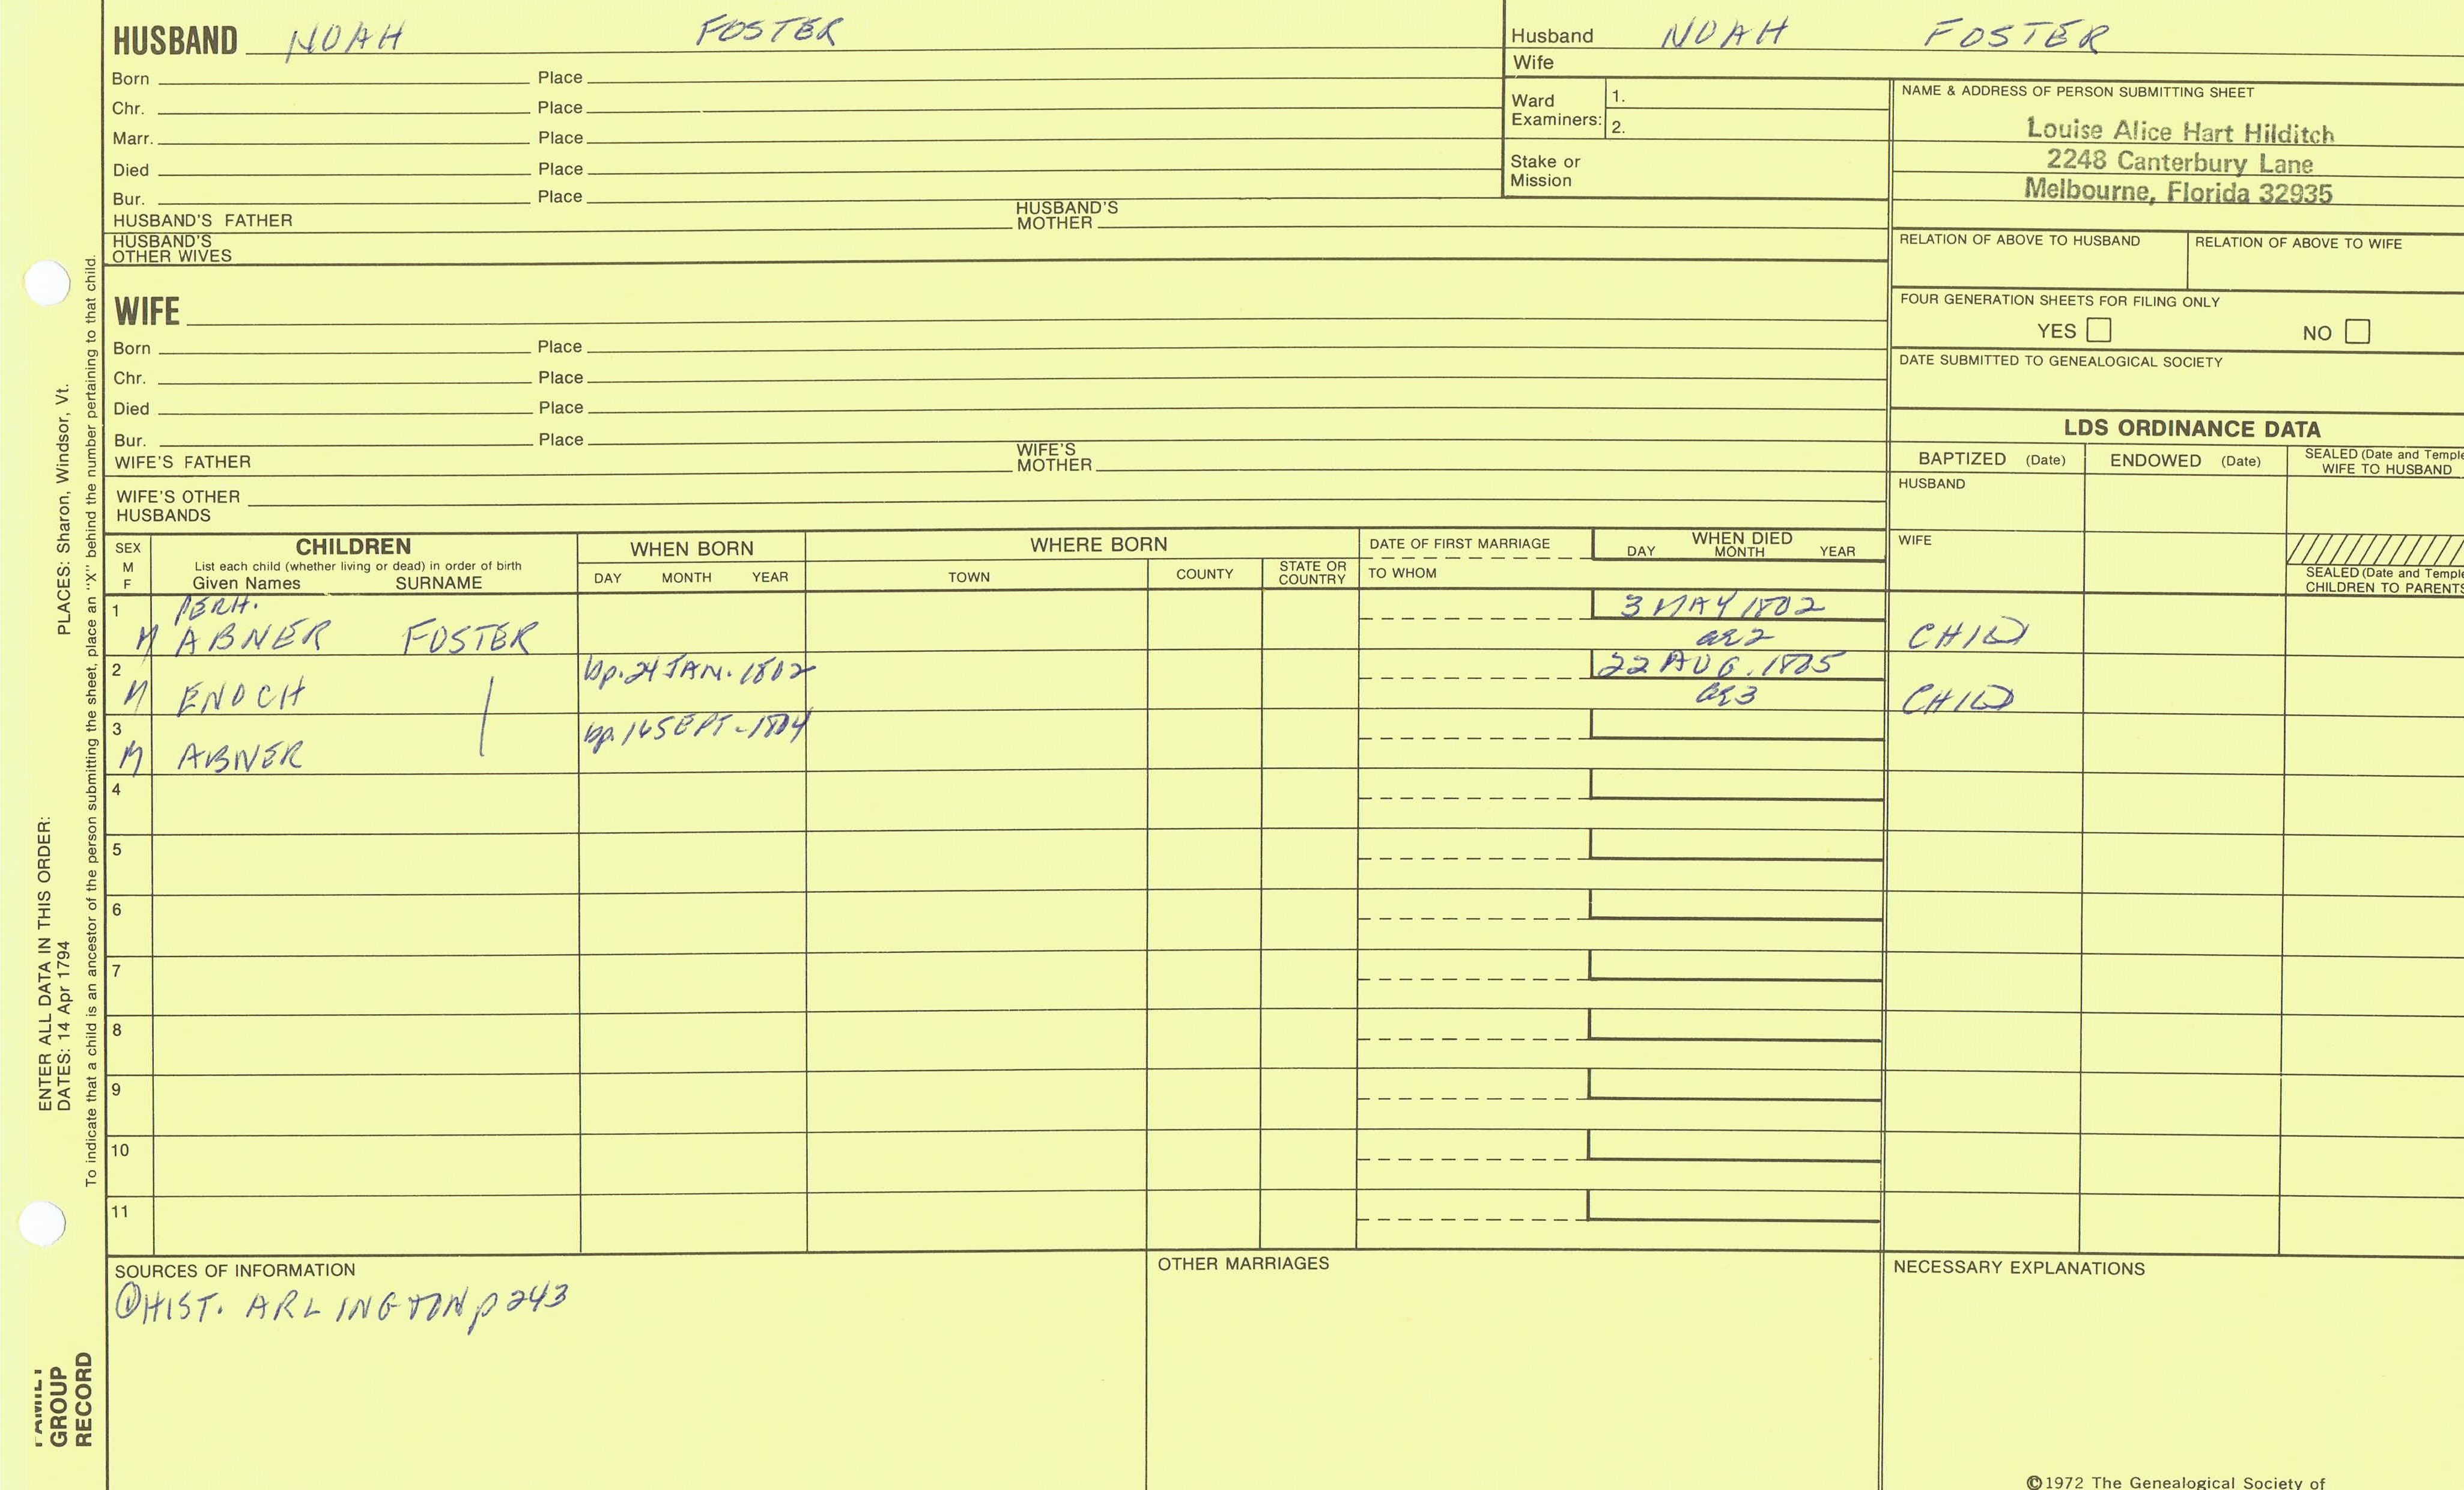 HUSBAND NOAH FOSTER
Born Place
Chr. Place
Marr. Place
Died Place
Bur. Place
HUSBAND'S FATHER HUSBAND'S MOTHER
HUSBAND'S OTHER WIVES
Husband NOAH FOSTER
Wife
Ward Examiners: 1.
2.
Stake or Mission
NAME & ADDRESS OF PERSON SUBMITTING SHEET
Louise Alice Hart Hilditch
2248 Canterbury Lane
Melbourne, Florida 32935
RELATION OF ABOVE TO HUSBAND RELATION OF ABOVE TO WIFE
FOUR GENERATION SHEETS FOR FILING ONLY
YES NO
DATE SUBMITTED TO GENEALOGICAL SOCIETY
WIFE
Born Place
Chr. Place
Died Place
Bur. Place
WIFE'S FATHER WIFE'S MOTHER
WIFE'S OTHER HUSBANDS
LDS ORDINANCE DATA
BAPTIZED (Date) ENDOWED (Date) SEALED (Date and Temple
WIFE TO HUSBAND
HUSBAND
WIFE
SEALED (Date and Temple
CHILDREN TO PARENTS
SEX
M
F
CHILDREN
List each child (whether living or dead) in order of birth
Given Names SURNAME
WHEN BORN
DAY MONTH YEAR
WHERE BORN
TOWN COUNTY STATE OR COUNTRY
DATE OF FIRST MARRIAGE
TO WHOM
WHEN DIED
DAY MONTH YEAR
1 PERH. 3 MAY 1802
M ABNER FOSTER GR2 CHILD
2 bp. 24 JAN. 1802 22 AUG. 1805
M ENOCH GR3 CHILD
3 bp. 16 SEPT. 1804
M ABNER
4
5
6
7
8
9
10
11
SOURCES OF INFORMATION
① HIST. ARLINGTON p 243
OTHER MARRIAGES
NECESSARY EXPLANATIONS
©1972 The Genealogical Society of
PLACES: Sharon, Windsor, Vt.
To indicate that a child is an ancestor of the person submitting the sheet, place an "X" behind the number pertaining to that child.
ENTER ALL DATA IN THIS ORDER:
DATES: 14 Apr 1794
FAMILY
GROUP
RECORD